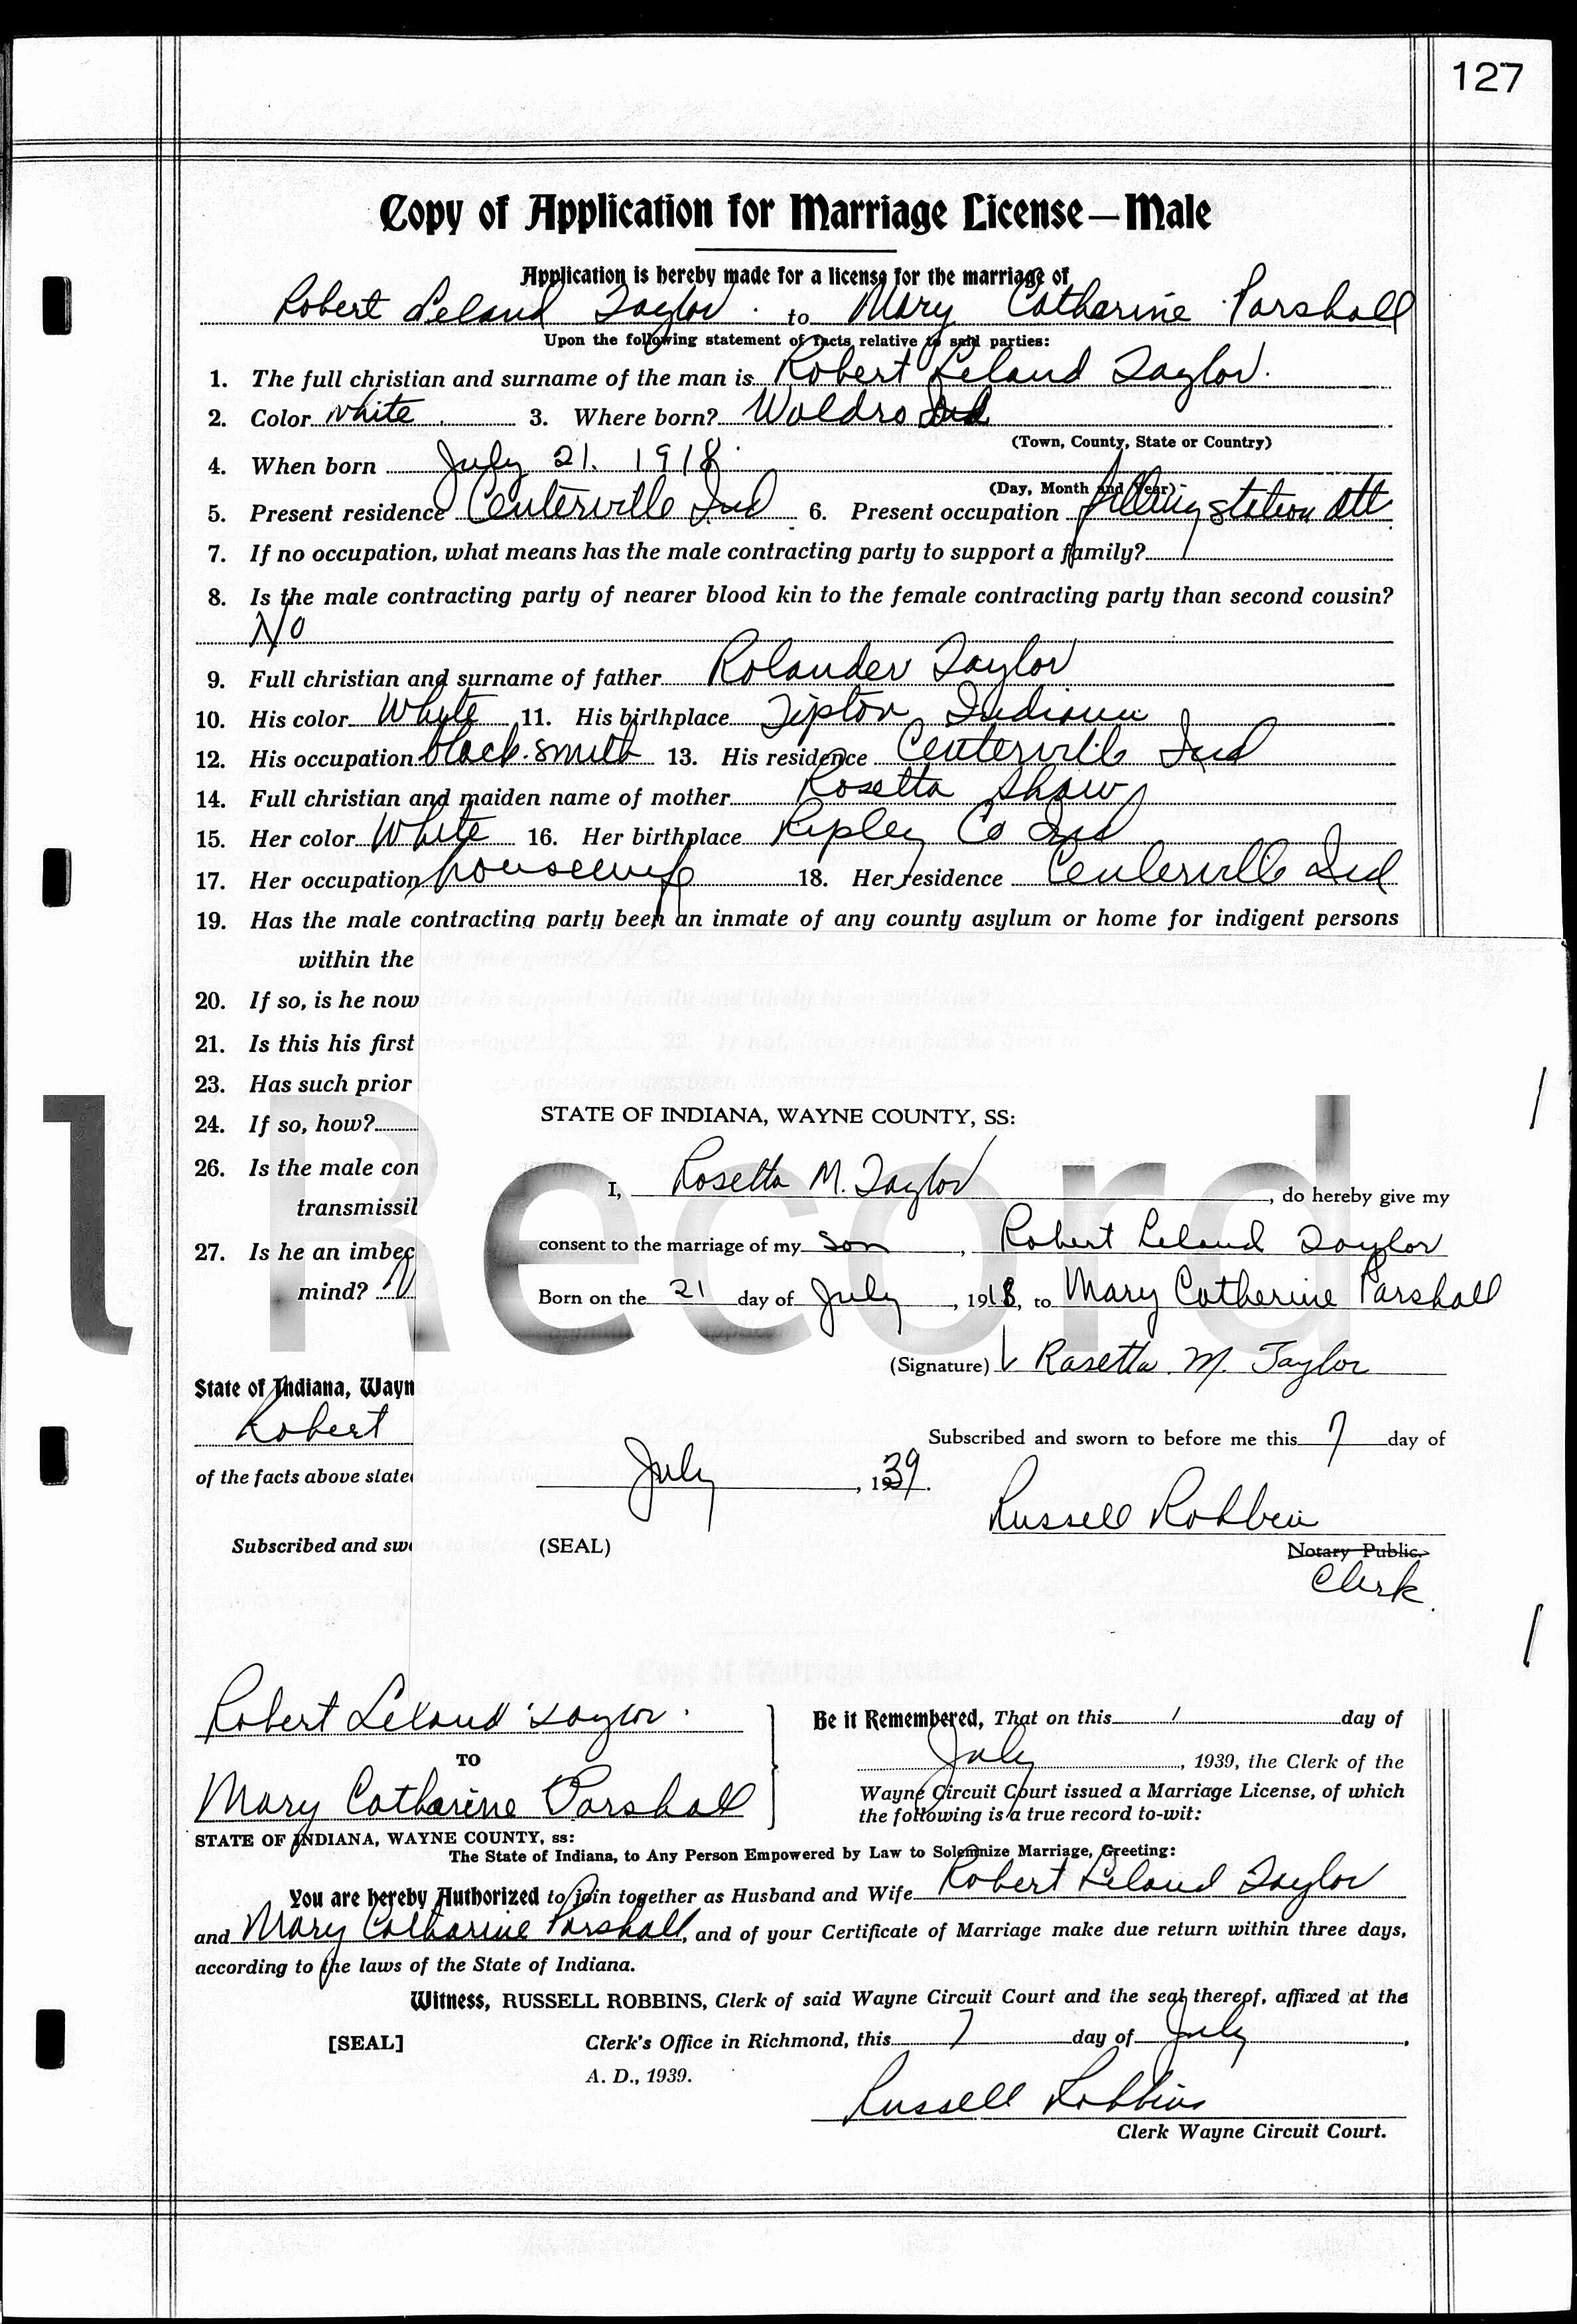 127
Copy of Application for Marriage License—Male
Application is hereby made for a license for the marriage of
Robert Leland Taylor to Mary Catharine Parshall
Upon the following statement of facts relative to said parties:
1. The full christian and surname of the man is Robert Leland Taylor.
2. Color white 3. Where born? Woldro Ind
(Town, County, State or Country)
4. When born July 21. 1918
(Day, Month and Year)
5. Present residence Centerville Ind 6. Present occupation filling station Att
7. If no occupation, what means has the male contracting party to support a family?
8. Is the male contracting party of nearer blood kin to the female contracting party than second cousin?
No
9. Full christian and surname of father Rolander Taylor
10. His color White 11. His birthplace Tipton Indiana
12. His occupation black-smith 13. His residence Centerville Ind
14. Full christian and maiden name of mother Rosetta Shaw
15. Her color White 16. Her birthplace Ripley Co Ind
17. Her occupation housewife 18. Her residence Centerville Ind
19. Has the male contracting party been an inmate of any county asylum or home for indigent persons
within the
20. If so, is he now
21. Is this his first
23. Has such prior
24. If so, how?
26. Is the male con
transmissil
27. Is he an imbec
mind? N
State of Indiana, Wayn
Robert
of the facts above stated
Subscribed and swo
STATE OF INDIANA, WAYNE COUNTY, SS:
I, Rosetta M. Taylor, do hereby give my
consent to the marriage of my son, Robert Leland Taylor
Born on the 21 day of July, 1918, to Mary Catherine Parshall
(Signature) Rosetta M. Taylor
Subscribed and sworn to before me this 7 day of
July, 1939.
Russell Robbins
(SEAL) Notary Public.
Clerk.
l Record
Robert Leland Taylor.
TO
Mary Catharine Parshall
STATE OF INDIANA, WAYNE COUNTY, ss:
Be it Remembered, That on this 7 day of
July, 1939, the Clerk of the
Wayne Circuit Court issued a Marriage License, of which
the following is a true record to-wit:
The State of Indiana, to Any Person Empowered by Law to Solemnize Marriage, Greeting:
You are hereby Authorized to join together as Husband and Wife Robert Leland Taylor
and Mary Catharine Parshall, and of your Certificate of Marriage make due return within three days,
according to the laws of the State of Indiana.
Witness, RUSSELL ROBBINS, Clerk of said Wayne Circuit Court and the seal thereof, affixed at the
[SEAL] Clerk's Office in Richmond, this 7 day of July,
A. D., 1939.
Russell Robbins
Clerk Wayne Circuit Court.